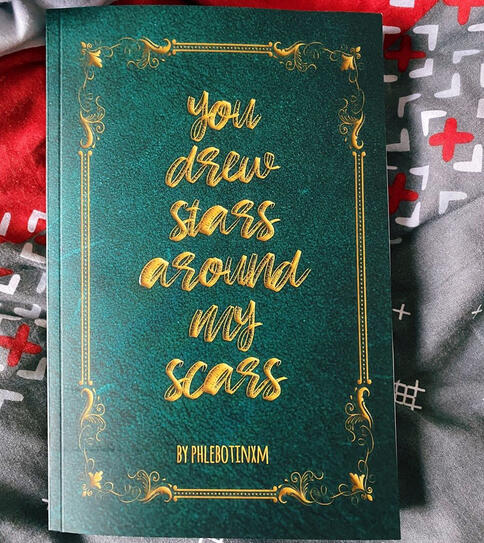 you
drew
stars
around
my
scars
BY PHLEBOTINXM